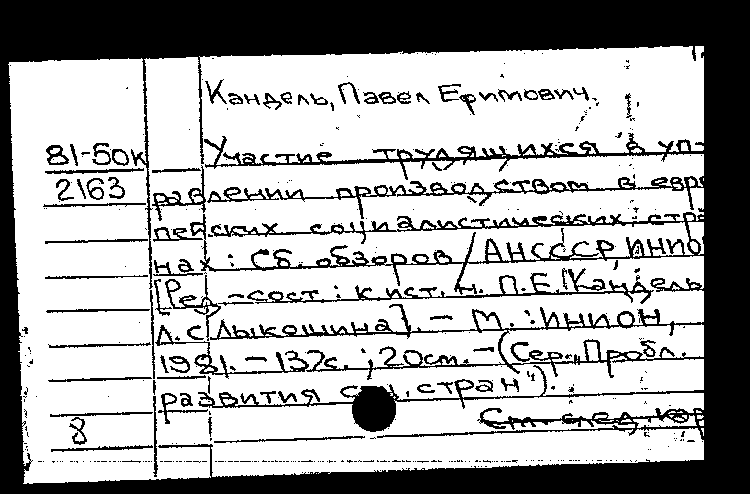 Кандель, Павел Ефимович.
81-50к Участие трудящихся в уп-
2163 равлении производством в евро
пейских социалистических стра
нах: Сб. обзоров / АН СССР, ИНИО
[Ред.-сост.: к.ист.н. П.Е. Кандель
Л.С. Лыкошина]. - М.: ИНИОН,
1981. - 137с.; 20см. - (Сер. "Пробл.
развития соц. стран").
8 См. след. кар